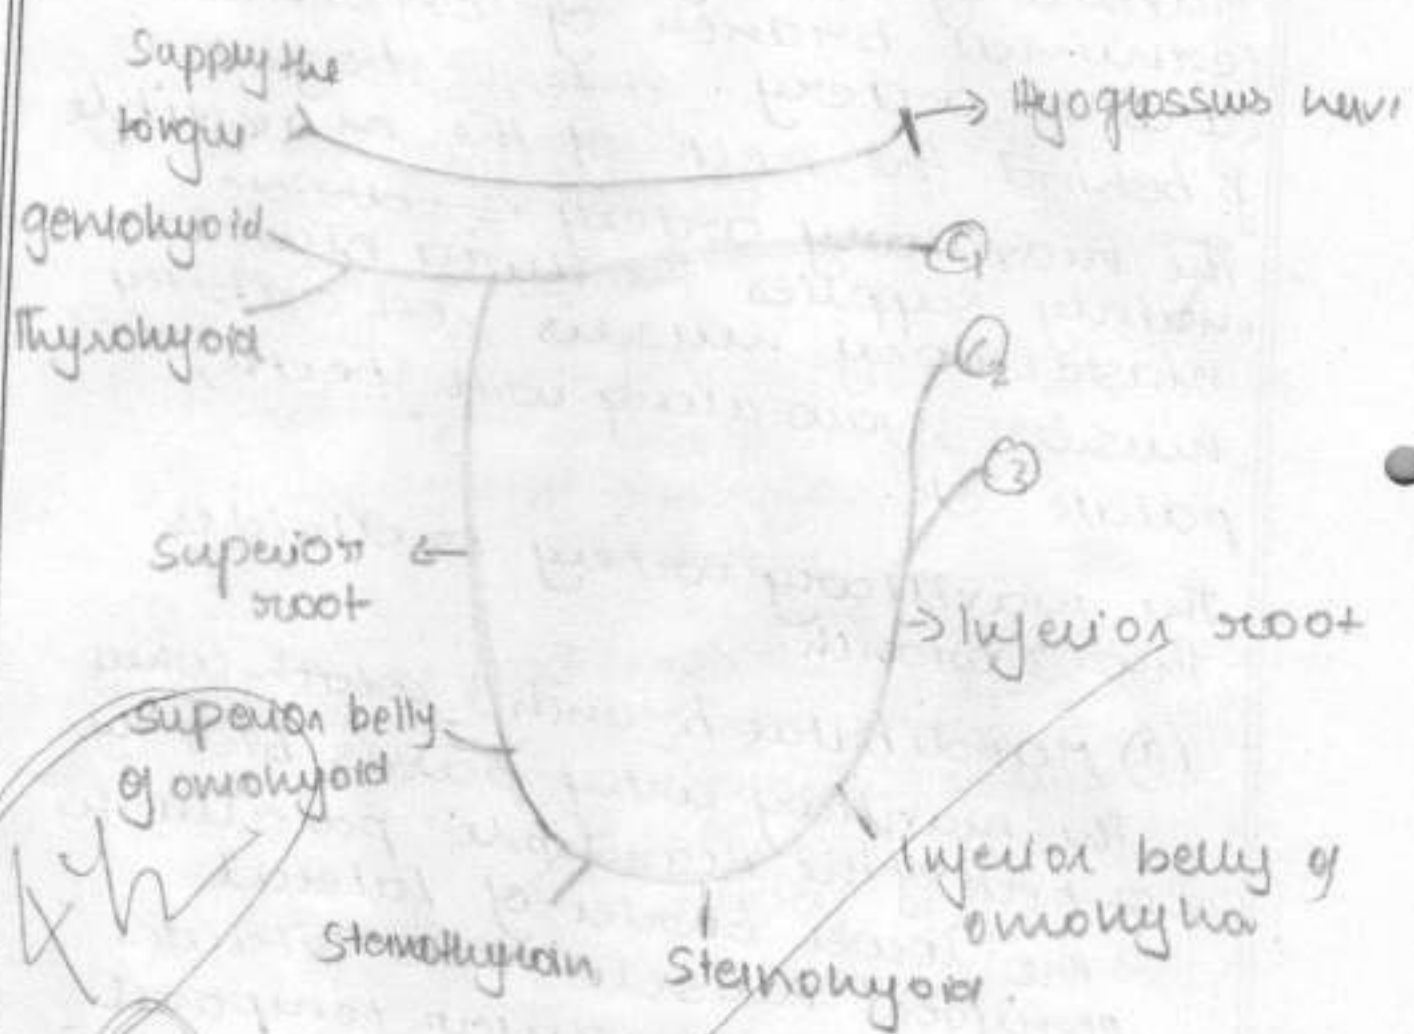 Supply the
tongue
Hyoglossus nerve
geniohyoid
C1
Thyrohyoid
C2
C3
Superior
root
Inferior root
Superior belly
of omohyoid
Inferior belly of
omohyoid
Sternothyroid
Sternohyoid.